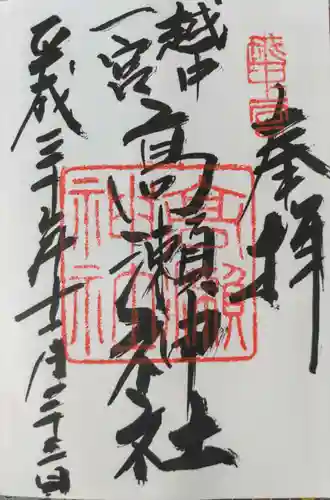 奉拝
越中
一宮
高瀬神社
平成三十年十二月二十二日
越中一宮
高瀬神社